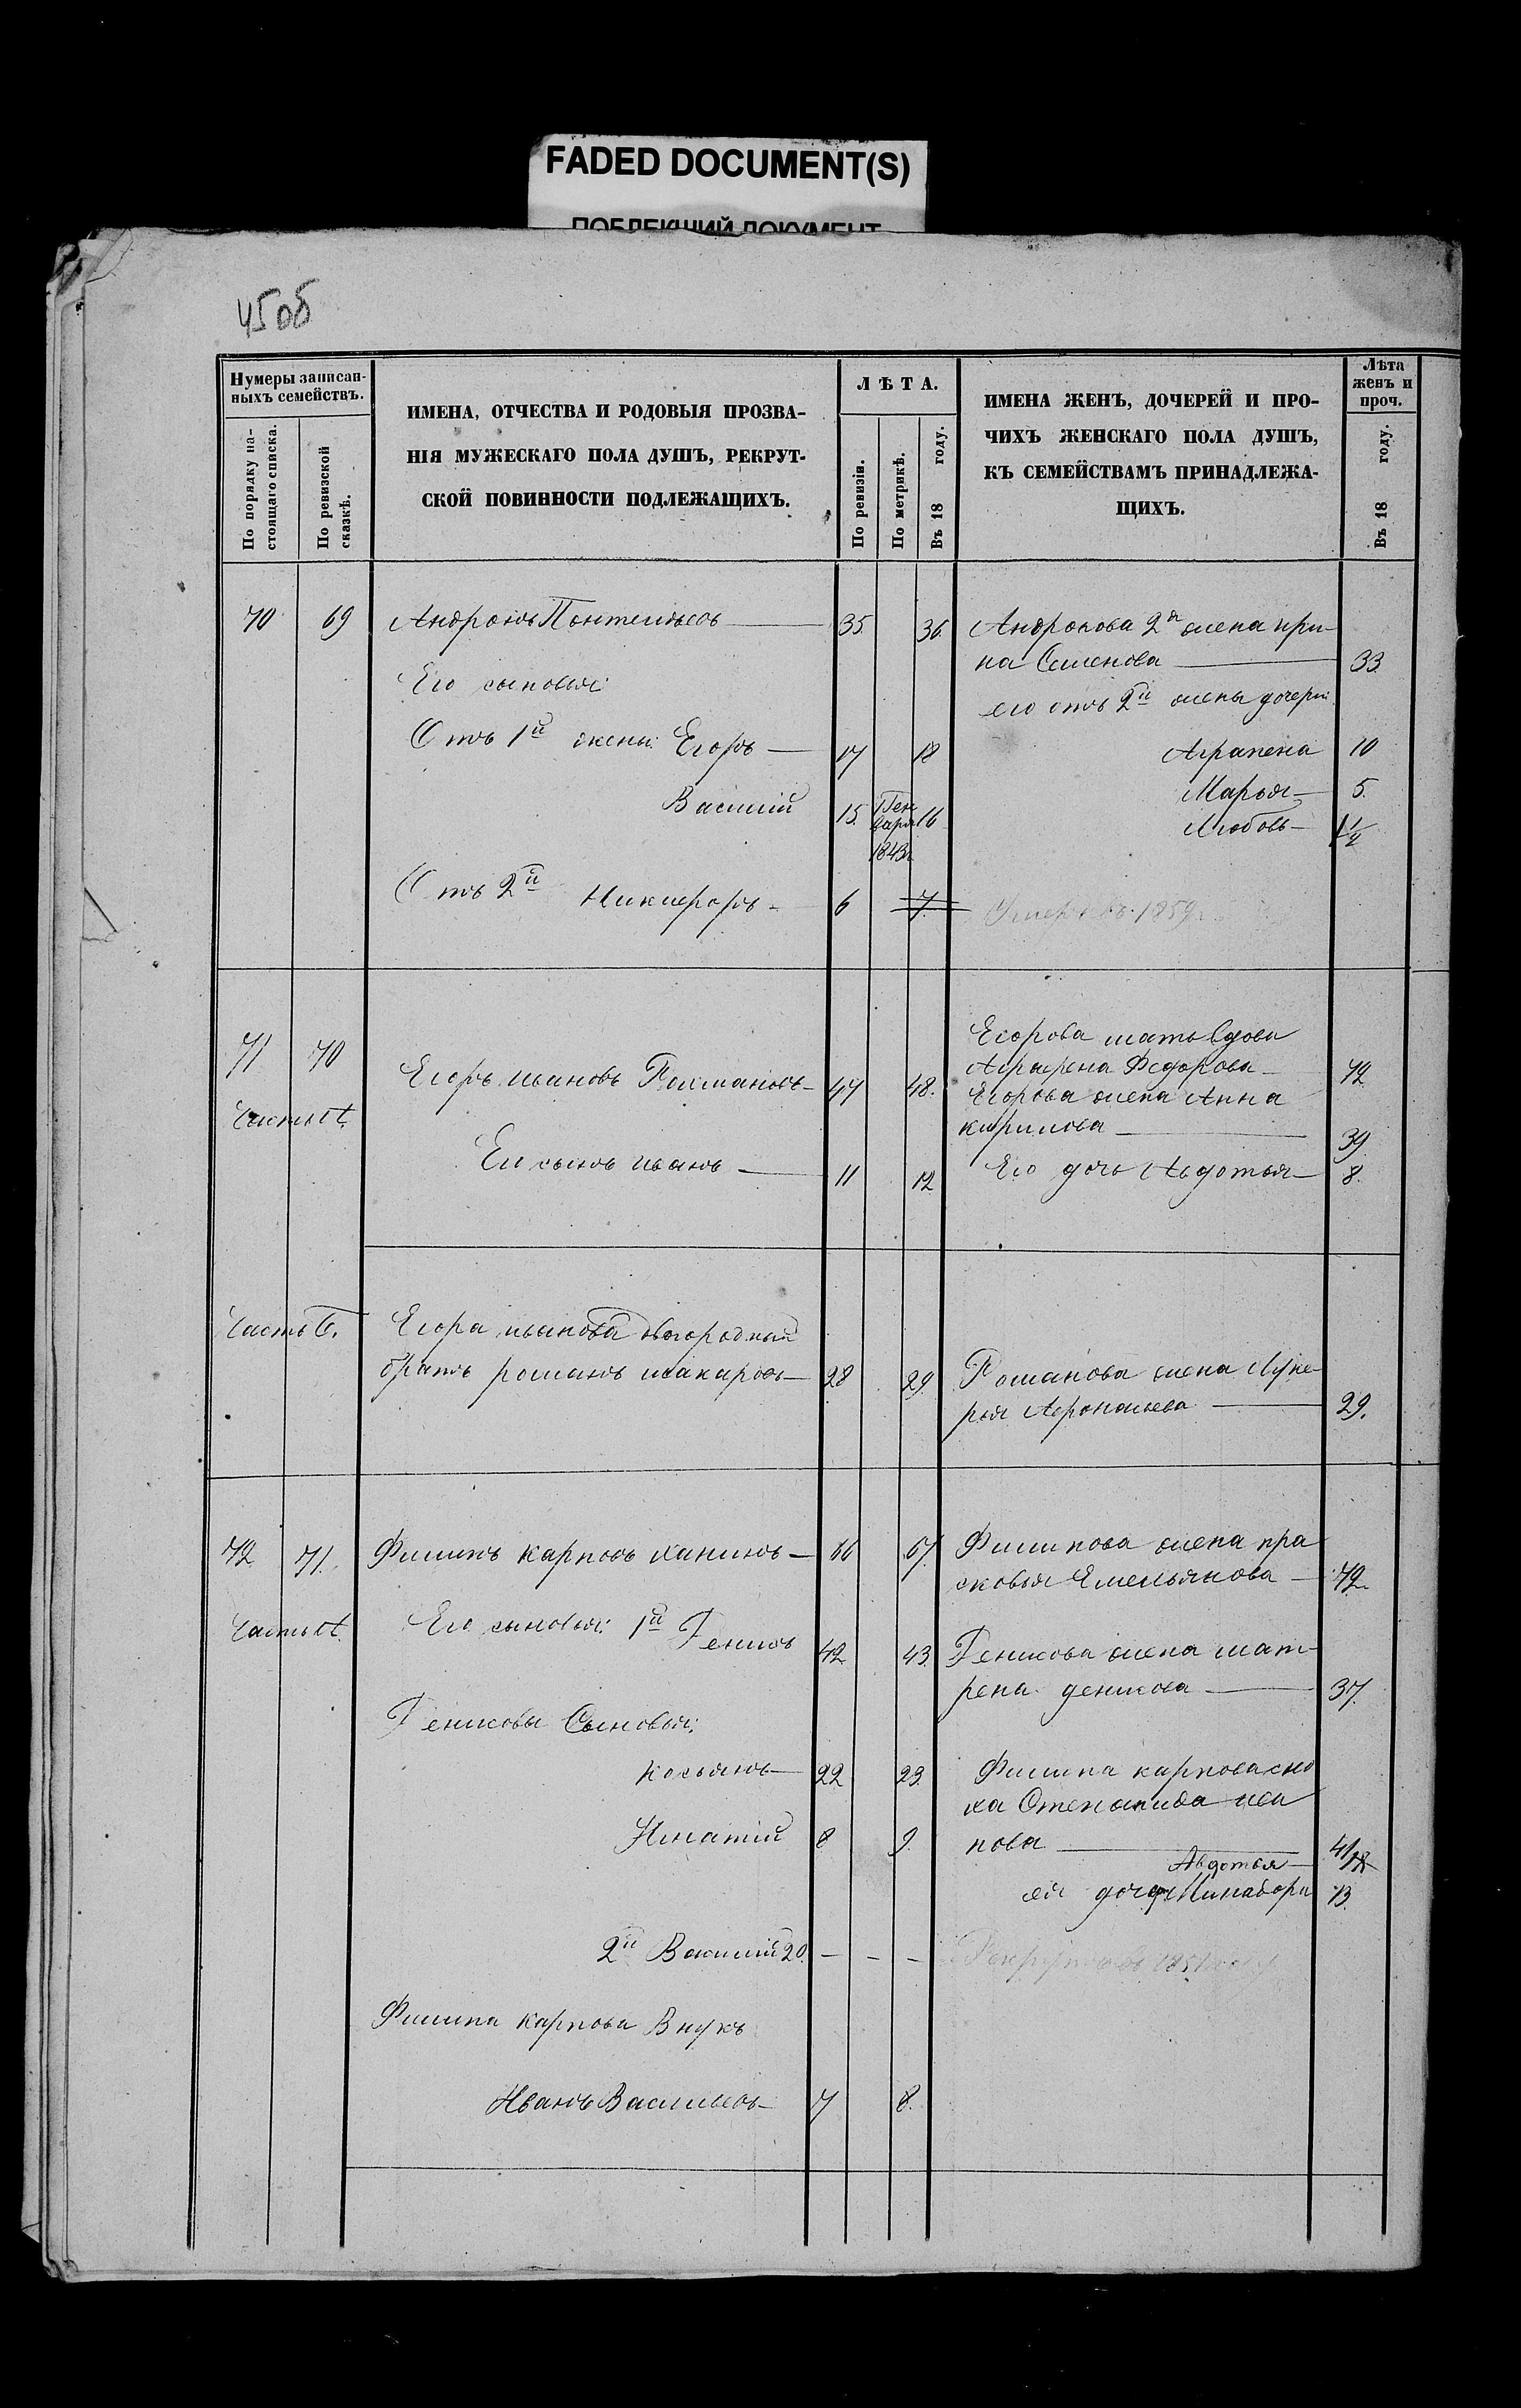 FADED DOCUMENT(S)
ПОБЛЕКШИЙ ДОКУМЕНТ
45об
Нумеры записан-
ныхъ семействъ.
По порядку на-
стоящаго списка.
По ревизской
сказкѣ.
ИМЕНА, ОТЧЕСТВА И РОДОВЫЯ ПРОЗВА-
НІЯ МУЖЕСКАГО ПОЛА ДУШЪ, РЕКРУТ-
СКОЙ ПОВИННОСТИ ПОДЛЕЖАЩИХЪ.
ЛѢТА.
По ревизіи.
По метрикѣ.
Въ 18 году.
ИМЕНА ЖЕНЪ, ДОЧЕРЕЙ И ПРО-
ЧИХЪ ЖЕНСКАГО ПОЛА ДУШЪ,
КЪ СЕМЕЙСТВАМЪ ПРИНАДЛЕЖА-
ЩИХЪ.
Лѣта
женъ и
проч.
Въ 18 году.
70 69 Андронъ Понтельевъ 35 36 Андронова 2я жена ири-
на Семенова 33
Его сыновья:
его отъ 2й жены дочери
Отъ 1й жены: Егоръ 17 18 Аграпена 10
Василій 15 Ген 16 Марья 5
варя Любовь 1 1/2
1843г
Отъ 2й Никифоръ 6 7 Умеръ въ 1859г
Егорова мать вдова
71 70 Аграфена Федорова 72
Егоръ ивановъ 47 48 Егорова жена Анна
Часть А. кирилова 39
Его сынъ иванъ 11 12 Его дочь Авдотья 8
Часть Б. Егора иванова двоюродный
братъ романъ макаровъ 28 29 Романова жена Луке-
рья Афонасьева 29.
72 71. Филипъ карповъ ханинъ 66 67 Филипова жена пра
сковья Емельянова 72
Часть А. Его сыновья: 1й Денисъ 42 43 Денисова жена мат-
рена денисова 37
Денисовы Сыновья:
касьянъ 22 23 Филипа карпова сно
ха Степанида ива
Игнатій 8 9 нова 41
Авдотья
ея дочеря 13
2й Василий 20 - - - Рекрутъ въ 1851 году
Филипа карпова Внукъ
Иванъ Васильевъ 7 8.